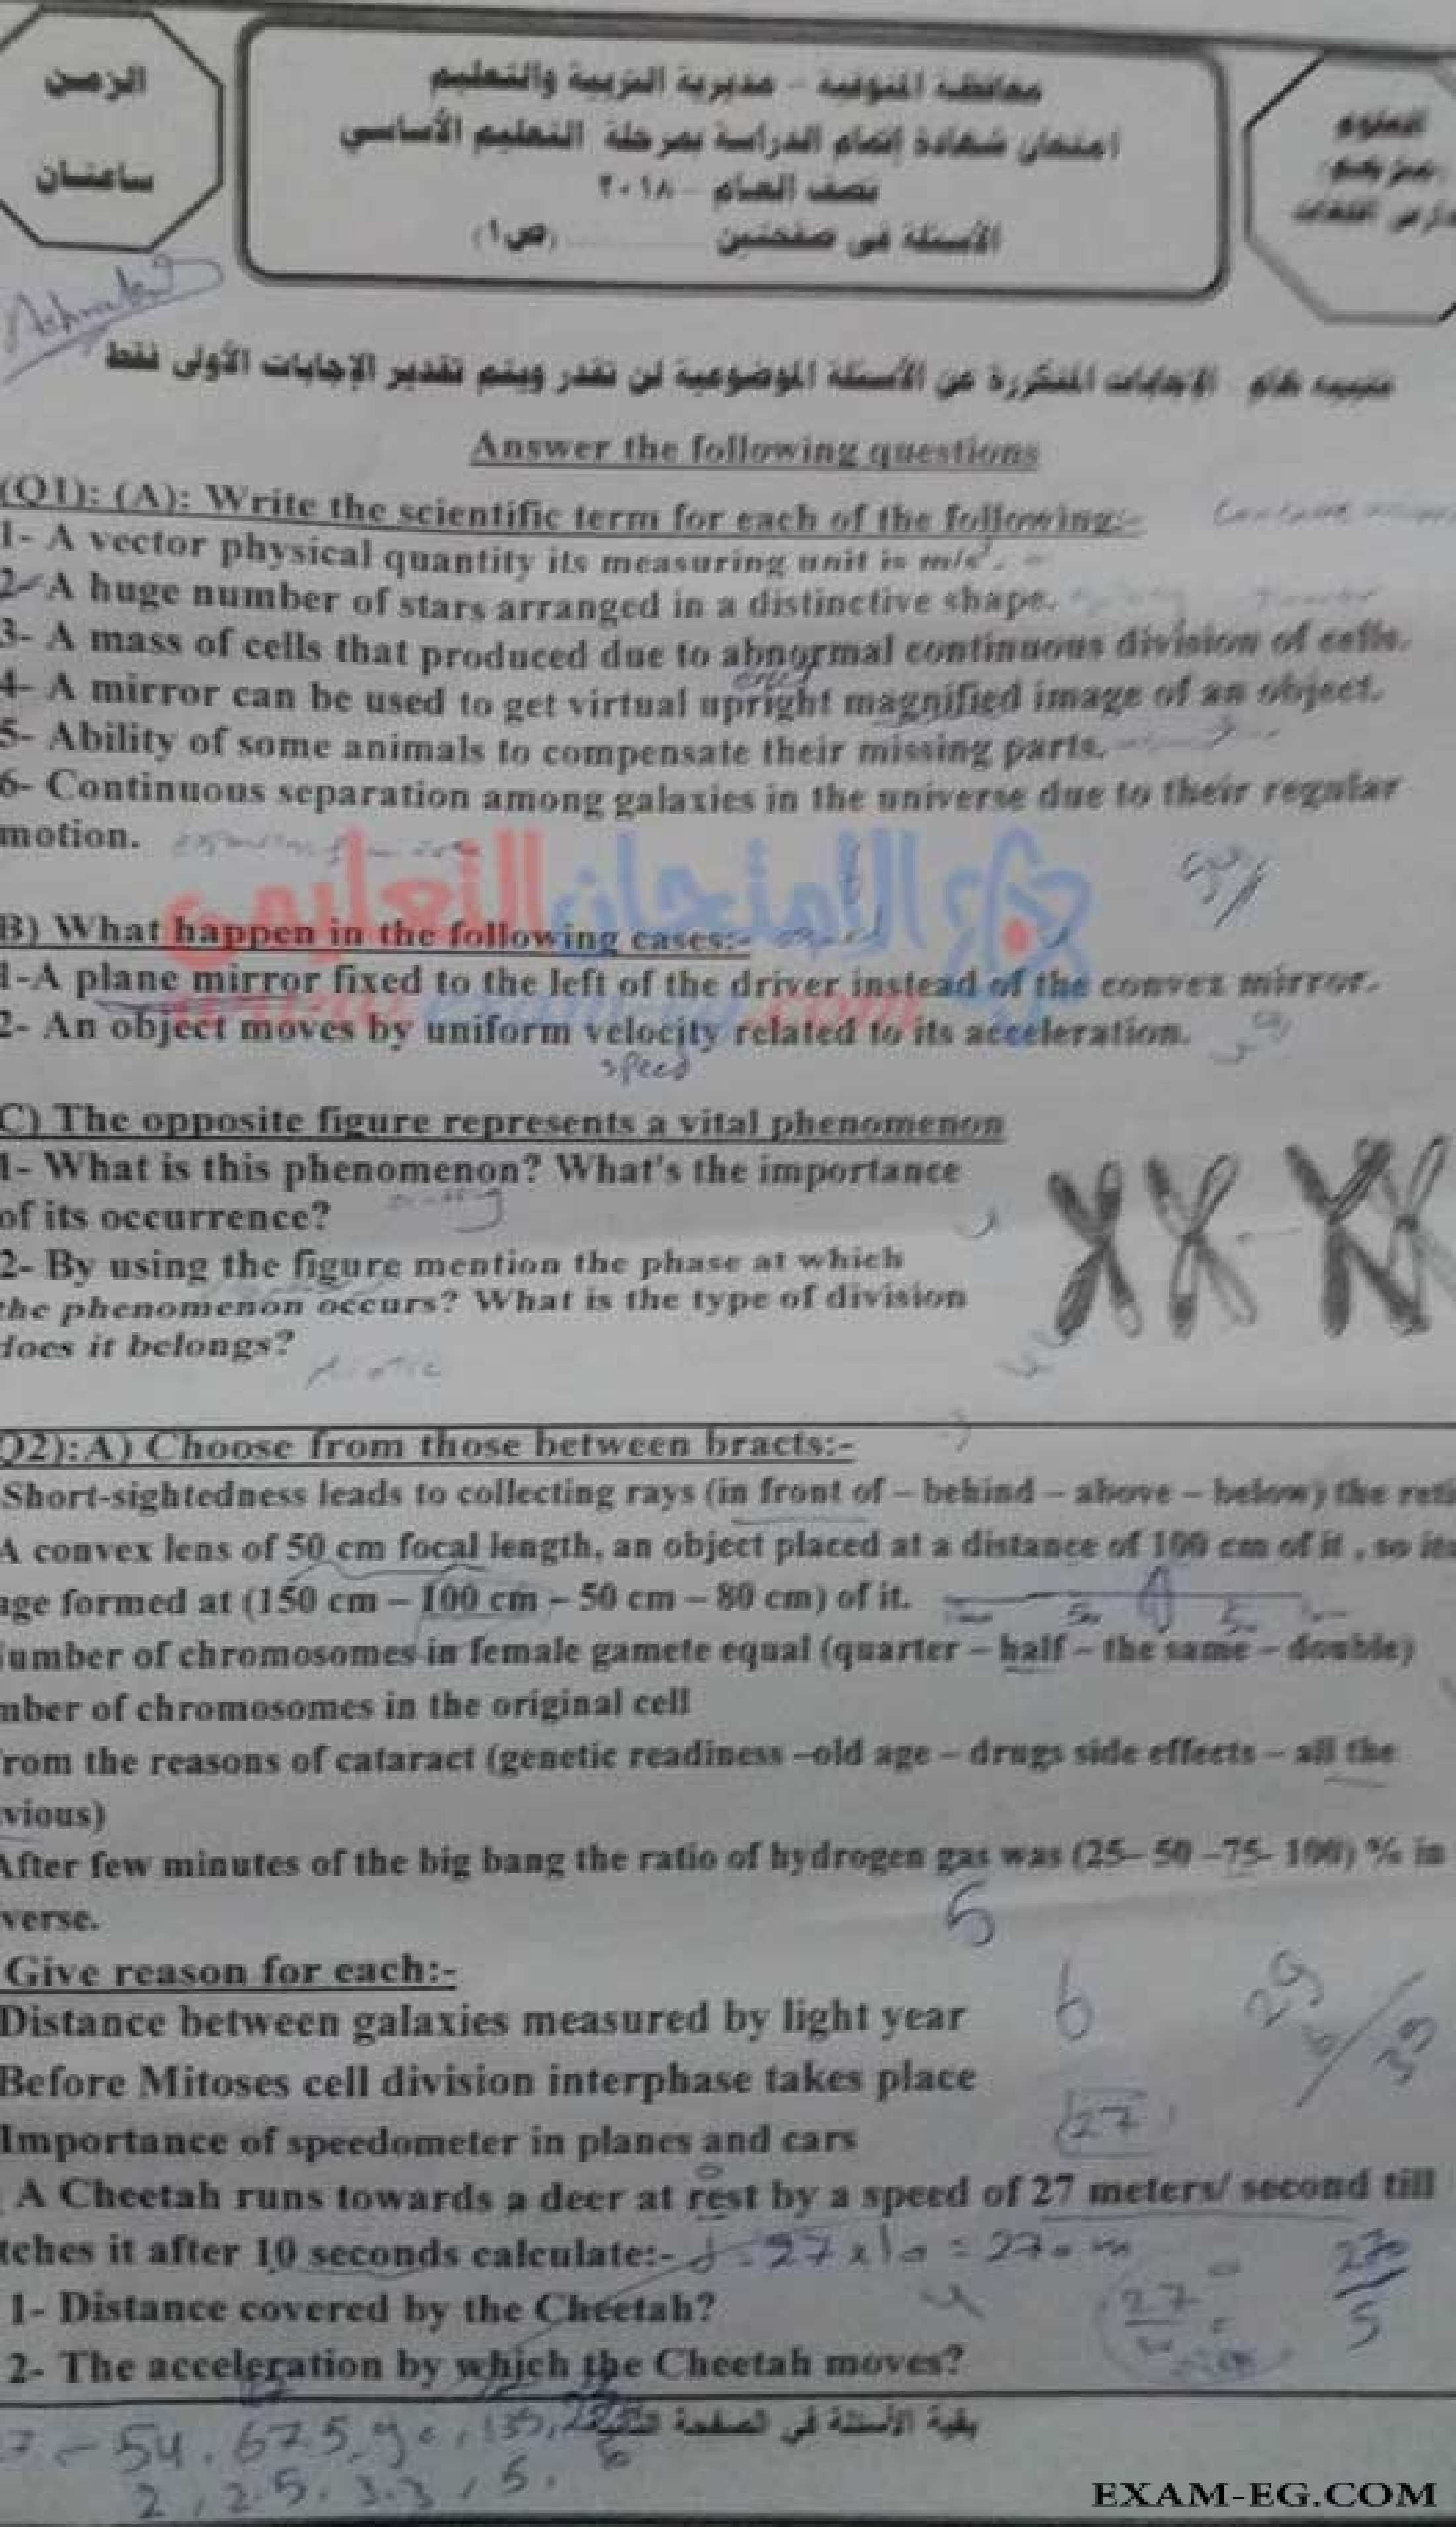 الزمن
ساعتان
محافظة المنوفية - مديرية التربية والتعليم
امتحان شهادة إتمام الدراسة بمرحلة التعليم الأساسي
نصف العام - ٢٠١٨
الأسئلة فى صفحتين ............ (ص١)
العلوم
تنبيه هام الإجابات المتكررة عن الأسئلة الموضوعية لن تقدر ويتم تقدير الإجابات الأولى فقط
Answer the following questions
(Q1): (A): Write the scientific term for each of the following:-
1- A vector physical quantity its measuring unit is m/s².
2- A huge number of stars arranged in a distinctive shape.
3- A mass of cells that produced due to abnormal continuous division of cells.
4- A mirror can be used to get virtual upright magnified image of an object.
5- Ability of some animals to compensate their missing parts.
6- Continuous separation among galaxies in the universe due to their regular
motion.
الامتحان التعليمى
B) What happen in the following cases:-
1-A plane mirror fixed to the left of the driver instead of the convex mirror.
2- An object moves by uniform velocity related to its acceleration.
speed
C) The opposite figure represents a vital phenomenon
1- What is this phenomenon? What's the importance
of its occurrence?
2- By using the figure mention the phase at which
the phenomenon occurs? What is the type of division
does it belongs?
Q2):A) Choose from those between bracts:-
Short-sightedness leads to collecting rays (in front of – behind – above – below) the reti
A convex lens of 50 cm focal length, an object placed at a distance of 100 cm of it , so its
age formed at (150 cm – 100 cm – 50 cm – 80 cm) of it.
umber of chromosomes in female gamete equal (quarter – half – the same – double)
mber of chromosomes in the original cell
rom the reasons of cataract (genetic readiness –old age – drugs side effects – all the
vious)
After few minutes of the big bang the ratio of hydrogen gas was (25– 50 –75- 100) % in
verse.
5
Give reason for each:-
Distance between galaxies measured by light year
6
Before Mitoses cell division interphase takes place
27
Importance of speedometer in planes and cars
A Cheetah runs towards a deer at rest by a speed of 27 meters/ second till
tches it after 10 seconds calculate:- d = 27 x 10 = 270 m
1- Distance covered by the Cheetah?
2- The acceleration by which the Cheetah moves?
270
5
بقية الأسئلة في الصفحة الثانية
54 , 67.5, 90, 135,
2 , 2.5, 3.3 , 5, 6
EXAM-EG.COM